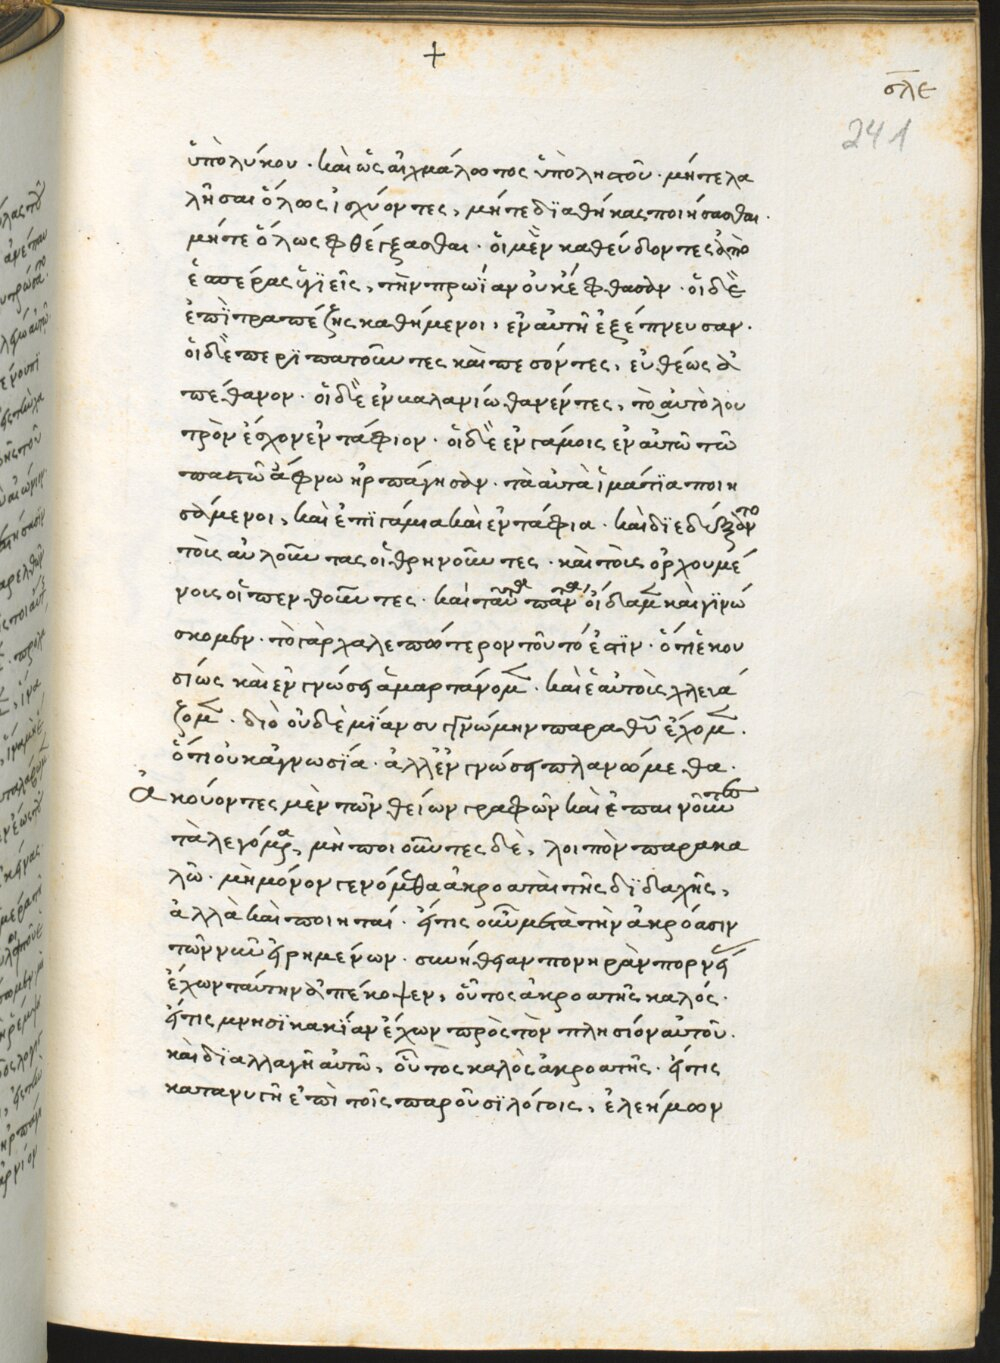 +
σλε
241
ὑπὸ λύκου · καὶ ὡς αἰχμάλωτος ὑπὸ ληστοῦ · μήτε λα
λῆσαι ὅλως ἰσχύοντες, μήτε διαθήκας ποιήσασθαι ·
μήτε ὅλως φθέγξασθαι · οἱ μὲν καθεύδοντες ἀπὸ
ἑσπέρας ὑγιεῖς, τὴν πρωΐαν οὐκ ἔφθασαν · οἱ δὲ
ἐπὶ τραπέζης καθήμενοι, ἐν αὐτῇ ἐξέπνευσαν ·
οἱ δὲ περιπατοῦντες καὶ πεσόντες, εὐθέως ἀ
πέθανον · οἱ δὲ ἐν βαλανίω θανέντες, τὸ αὐτὸ λου
τρὸν ἔσχον ἐντάφιον · οἱ δὲ ἐν γάμοις ἐν αὐτῶ τῶ
παστῶ ἄφνω ἡρπάγησαν · τὰ αὐτὰ ἱμάτια ποιη
σάμενοι, καὶ ἐπιγάμια καὶ ἐντάφια · καὶ διεδέξαντο
τοὺς αὐλοῦντας οἱ θρηνοῦντες · καὶ τοὺς ὀρχουμέ
νοις οἱ πενθοῦντες · καὶ ταῦτα πάντα οἴδαμεν καὶ γινώ
σκομεν · τὸ γὰρ χαλεπώτερον τοῦτό ἐστιν · ὅτι ἑκου
σίως καὶ ἐν γνώσει ἁμαρτάνομεν · καὶ ἑαυτοὺς χλευά
ζομεν · διὸ οὐδὲ μίαν συγγνώμην παρὰ θῦ ἔχομεν ·
ὅτι οὐκ ἀγνωσία · ἀλλ' ἐν γνώσει πλανώμεθα ·
Ἀκούοντες μὲν τῶν θείων γραφῶν καὶ ἐπαινοῦντες
τὰ λεγόμενα, μὴ ποιοῦντες δὲ, λοιπὸν παρακα
λῶ · μὴ μόνον γενόμεθα ἀκροαταὶ τῆς διδαχῆς,
ἀλλὰ καὶ ποιηταί · εἴτις οὖν μετὰ τὴν ἀκρόασιν
τῶν νῦν εἰρημένων · συνήθειαν πονηρὰν πορνεί
ἔχων ταύτην ἀπέκοψεν, οὗτος ἀκροατὴς καλός ·
εἴτις μνησικακίαν ἔχων πρὸς τὸν πλησίον αὐτοῦ ·
καὶ διαλλαγῆ αὐτῶ, οὗτος καλὸς ἀκροατής · εἴτις
κατανυγῆ ἐπὶ τοῖς παροῦσι λόγοις, ἐλεήμων